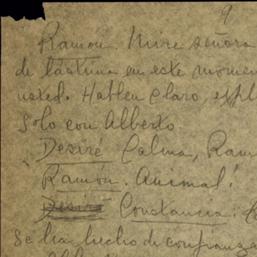 9
Ramón. Mire señora
de lástima en este momen
usted. Hablen claro, expl
solo con Alberto
Desiré Calma, Ram
Ramón. Animal!
Desiré Constancia.
se ha hecho de confianza